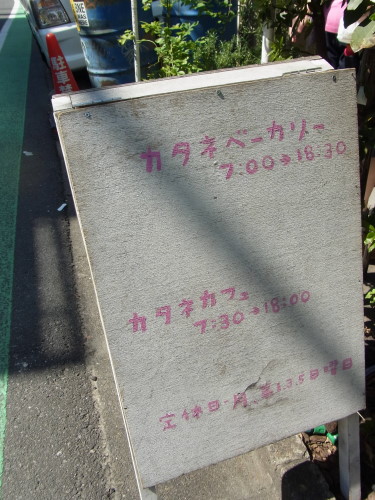 駐車
カタネベーカリー
7:00→18:30
カタネカフェ
7:30→18:00
定休日-月 第1.3.5日曜日